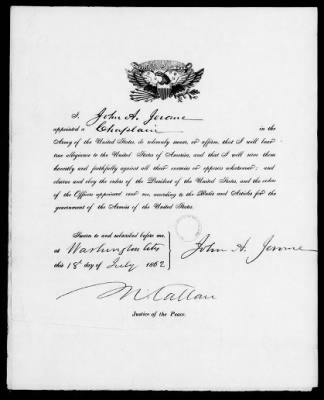 I, John A. Jerome
appointed a Chaplain in the
Army of the United States, do solemnly swear, or affirm, that I will bear
true allegiance to the United States of America, and that I will serve them
honestly and faithfully against all their enemies or opposers whatsoever; and
observe and obey the orders of the President of the United States, and the orders
of the Officers appointed over me, according to the Rules and Articles for the
government of the Armies of the United States.
Sworn to and subscribed before me,
at Washington City
this 18th day of July 1862
John A. Jerome
Justice of the Peace.